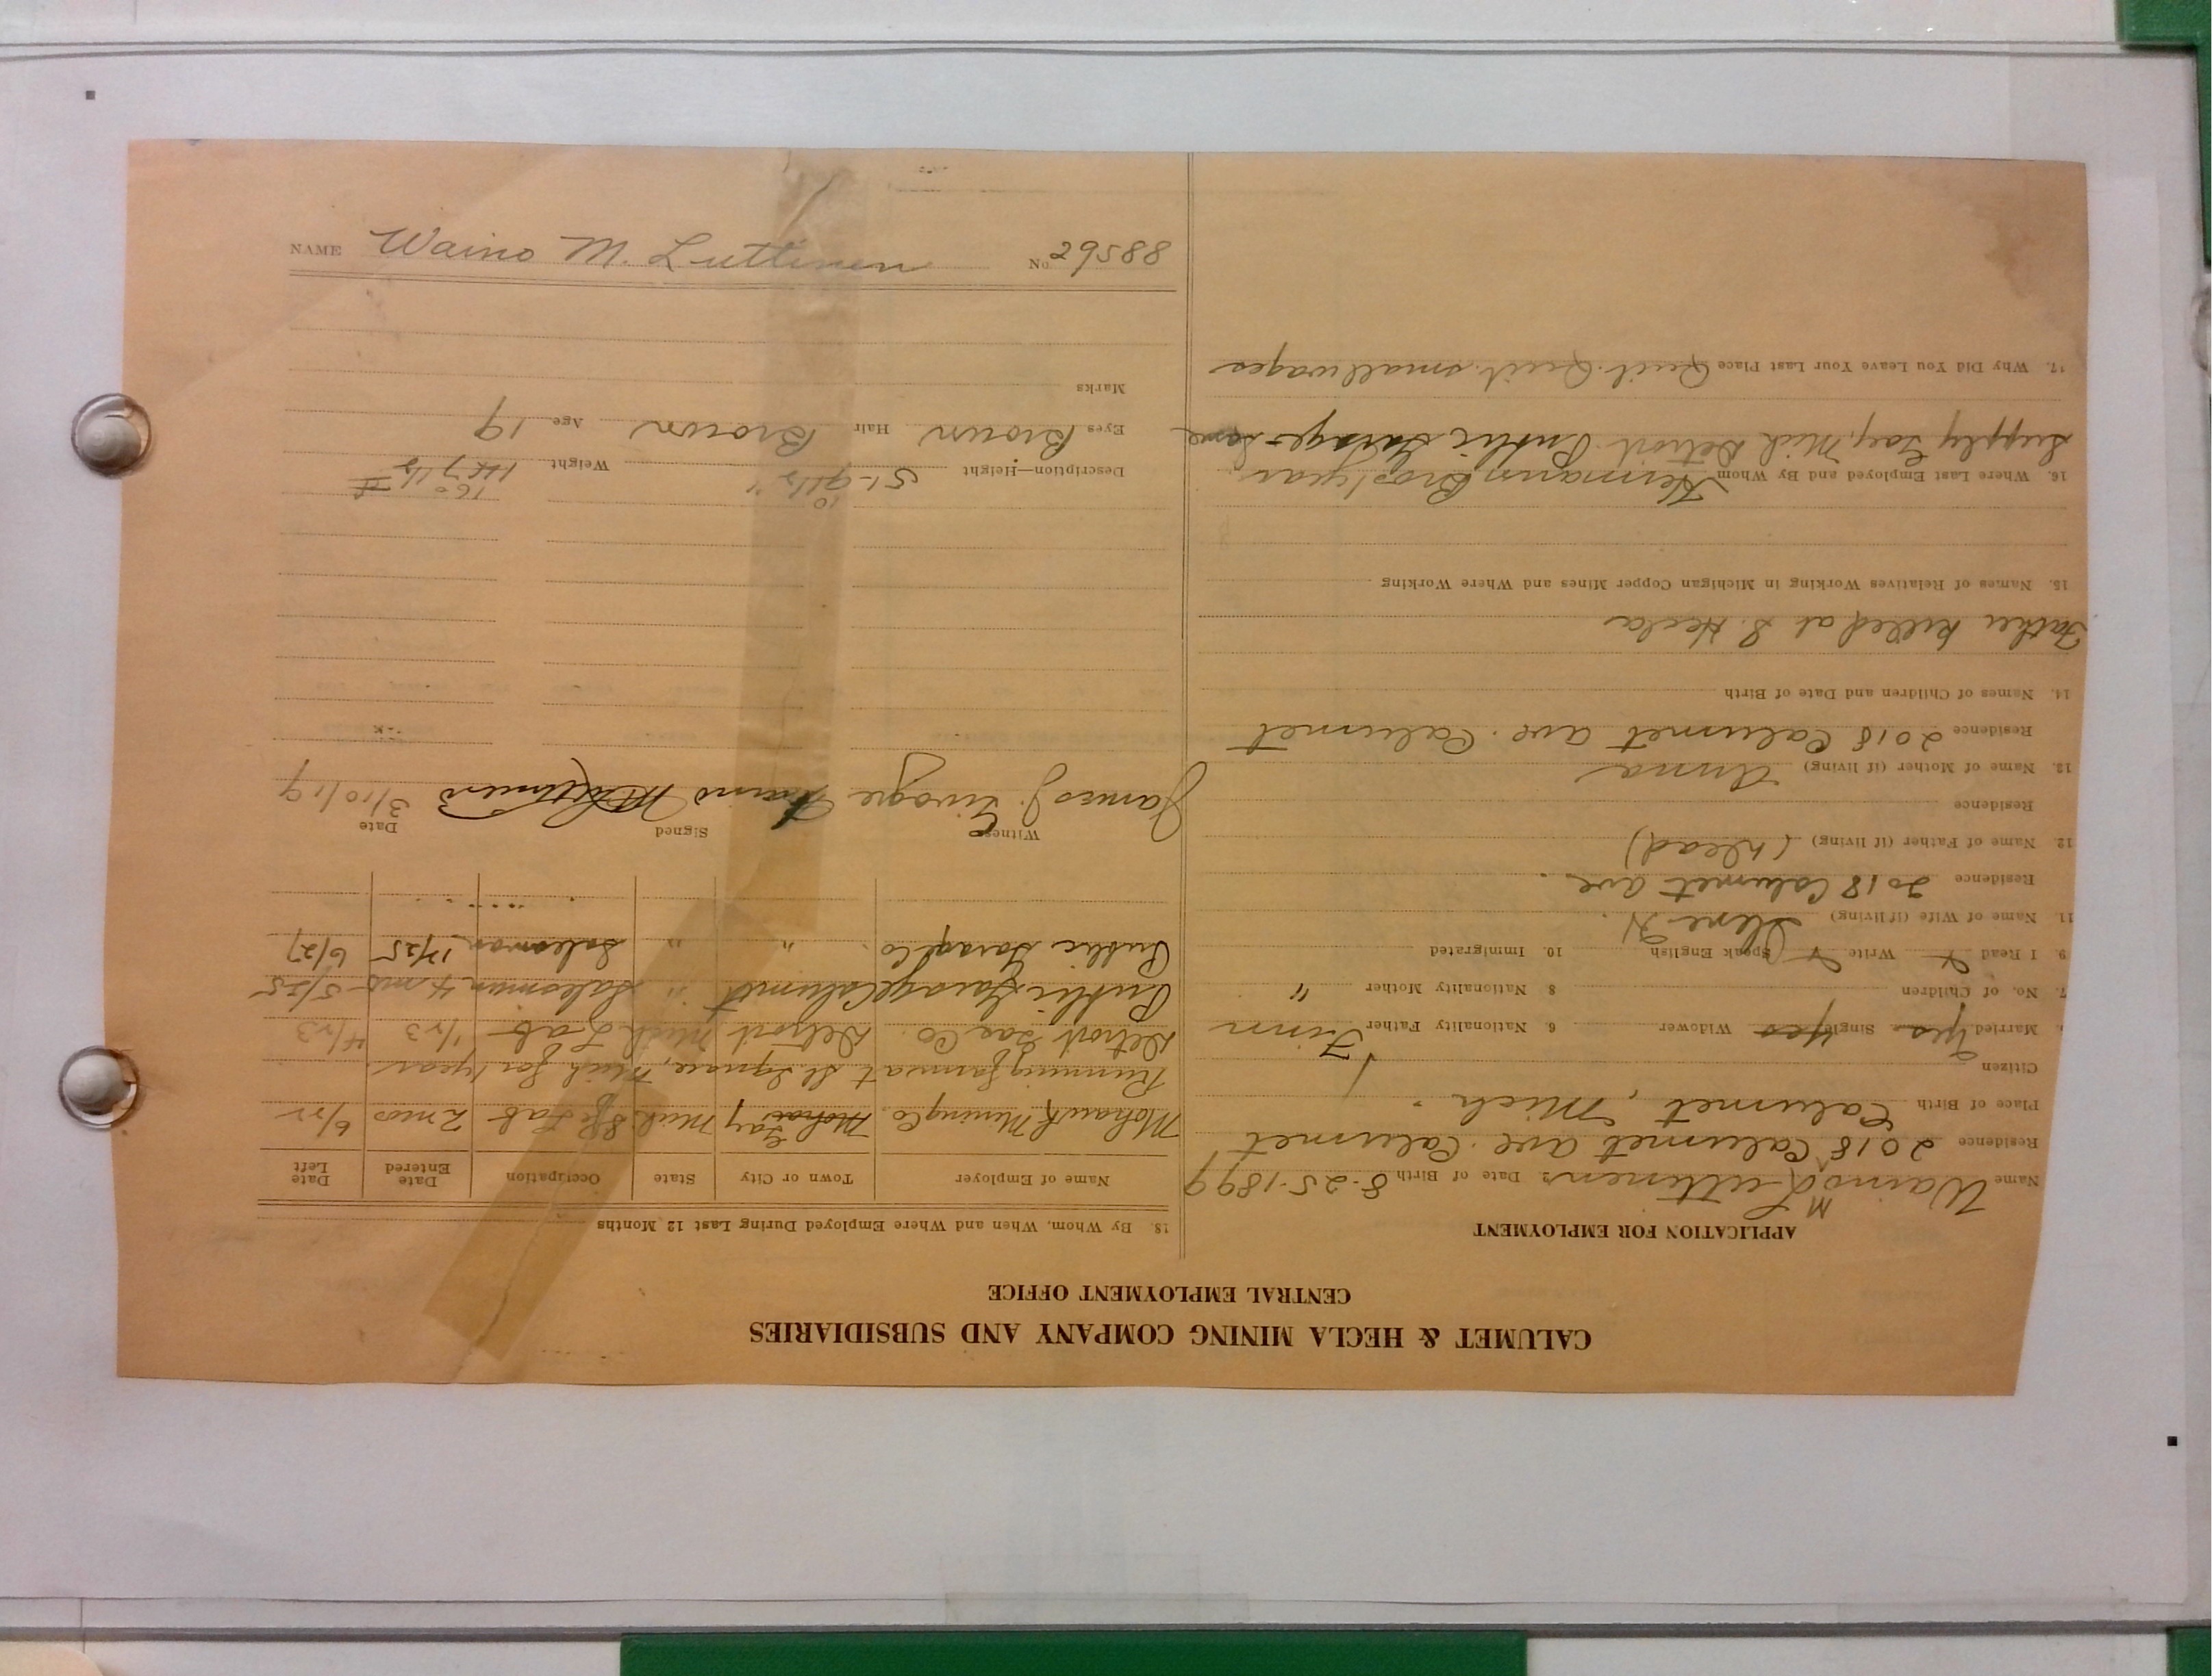 CALUMET & HECLA MINING COMPANY AND SUBSIDIARIES
CENTRAL EMPLOYMENT OFFICE
APPLICATION FOR EMPLOYMENT
Name Waino M Luttinen Date of Birth 8-25-1899
Residence 2018 Calumet ave. Calumet
Place of Birth Calumet, Mich.
Citizen
Married Yes Single yes Widower 6. Nationality Father Finn
7. No. of Children 8 Nationality Mother "
9. I Read Write Speak English 10. Immigrated
11. Name of Wife (if living)
Residence 2018 Calumet ave.
12. Name of Father (if living) (dead)
Residence
13. Name of Mother (if living) Anna
Residence 2018 Calumet ave. Calumet
14. Names of Children and Date of Birth
Father killed at S. Hecla
15. Names of Relatives Working in Michigan Copper Mines and Where Working
16. Where Last Employed and By Whom Hermann Bros 1 year
Supply Gay, Mich Detroit Public Garage
17. Why Did You Leave Your Last Place Quit Quit small wages
18. By Whom, When and Where Employed During Last 12 Months
Name of Employer Town or City State Occupation Date Entered Date Left
Mohawk Mining Co. Mohaw Gay Mich Lab 2 mos 6/22
Running farm at Mich for 1 year
Detroit Gas Co. Detroit Mich Lab 1/23 4/23
Public Garage Calumet " Salesman 4 mos 5/25
Public Garage Co " " Salesman 12/25 6/27
Witness Signed Date
James J. Waino M Luttinen 3/10/19
10 160
Description—Height 5'-9 1/2" Weight 147 1/2 #
Eyes Brown Hair Brown Age 19
Marks
NAME Waino M. Luttinen No 29588